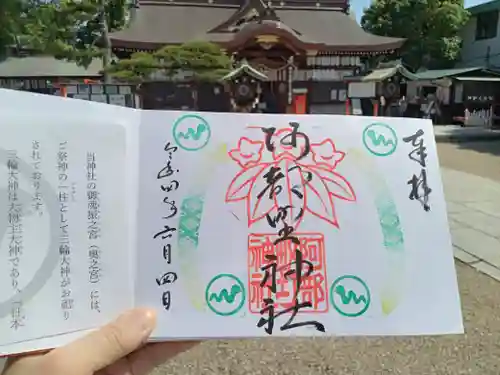 奉拝
阿部野神社
阿部野神社
令和四年六月四日
当神社の御魂振之宮（奥之宮）には、
ご祭神の一柱として三輪大神がお祀り
されております。
三輪大神は大物主大神であり、「日本